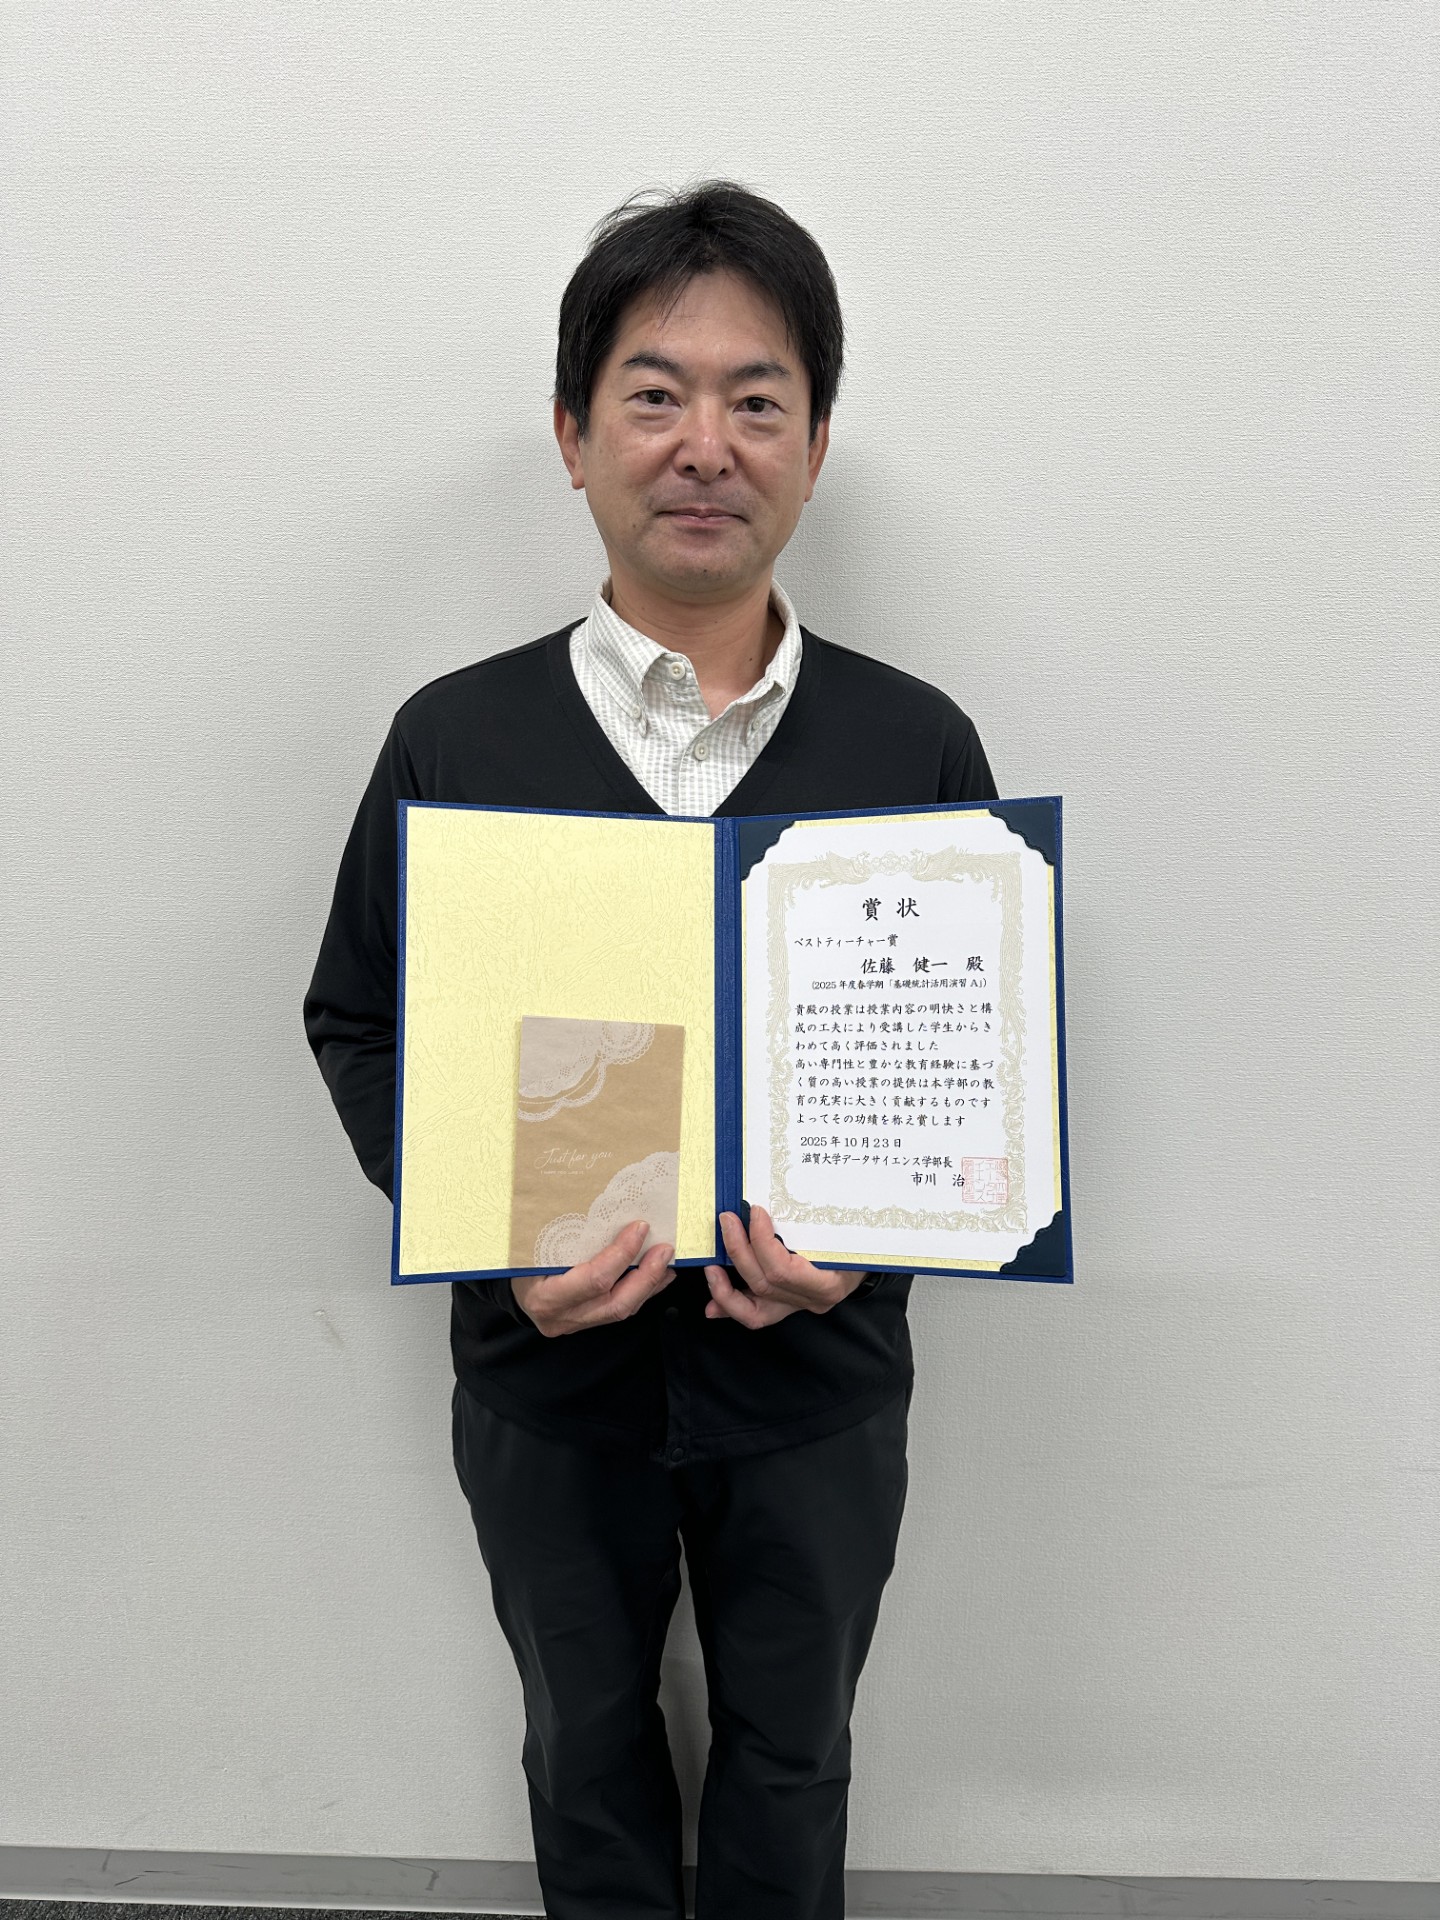 賞状
ベストティーチャー賞
佐藤 健一 殿
(2025年度春学期「基礎統計活用演習 A」)
貴殿の授業は授業内容の明快さと構
成の工夫により受講した学生からき
わめて高く評価されました
高い専門性と豊かな教育経験に基づ
く質の高い授業の提供は本学部の教
育の充実に大きく貢献するものです
よってその功績を称え賞します
2025年10月23日
滋賀大学データサイエンス学部長
市川 治
Just for you